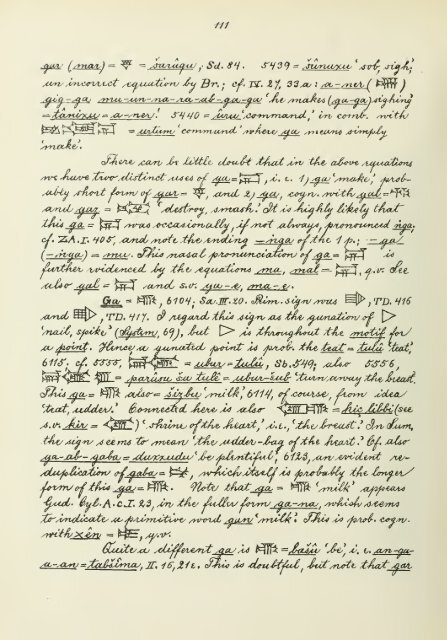 111
gar (mar) = 𒃻 = šarâqu; Sd. 84. 5439 = šûnuxu 'sob, sigh,'
an incorrect equation by Br.; cf. IV. 27, 33.a: a-ner ( )
gig-ga mu-un-na-ra-ab-ga-ga 'he makes (ga-ga) sighing'
= tânixu = a-ner! 5440 = urru 'command,' in comb. with
= urtum 'command' where ga means simply
'make.'
There can be little doubt that in the above equations
we have two distinct uses of ga = , i. e. 1) ga 'make,' prob-
ably short form of gar- , and 2) ga, cogn. with gul =
and gaz = 'destroy, smash.' It is highly likely that
this ga = was occasionally, if not always, pronounced ñga,
cf. ZA. I. 405, and note the ending -ñga of the 1 p.; -ga
(-ñga) = mu. This nasal pronunciation of ga = is
further evidenced by the equations ma, mal = , q.v. See
also gal = and s.v. ga-e, ma-e.
Ga = , 6104, Sa. III. 20. Prim. sign was , TD. 416
and , TD. 417. I regard this sign as the gunation of
'nail, spike' (System, 69), but is throughout the motif for
a point. Hence a gunated point is prob. the teat = tulû 'teat,'
6115. cf. 5555, = ubur = tulû, Sb. 549; also 5556,
= parisu ša tulî = ubur-šub 'turn away the breast.'
This ga = also = šizbu 'milk,' 6114, of course, from idea
'teat, udder.' Connected here is also = kiç libbi (see
s.v. kir = )' shrine of the heart,' i.e., 'the breast.' In Sum.
the sign seems to mean 'the udder-bag of the heart.' Cf. also
ga-ab-gaba = duxxudu 'be plentiful,' 6123, an evident re-
duplication of gaba = , which itself is probably the longer
form of this ga = . Note that ga = 'milk' appears
Gud. Cyl. A. c. I. 23, in the fuller form ga-na, which seems
to indicate a primitive word gan 'milk.' This is prob. cogn.
with xên = , q.v.
Quite a different ga is = bašû 'be', i. e. an-ga-
a-an = tabšîma, II. 16, 21e. This is doubtful, but note that gar